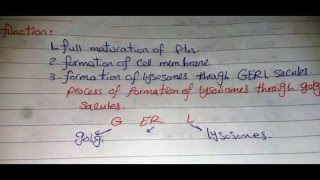 function:
1. full maturation of Ptn
2. formation of Cell membrane
3- formation of lysosomes through GERL sacules.
Process of formation of lysosomes through golgi
sacules.
G ER L
golgi lysosomes.